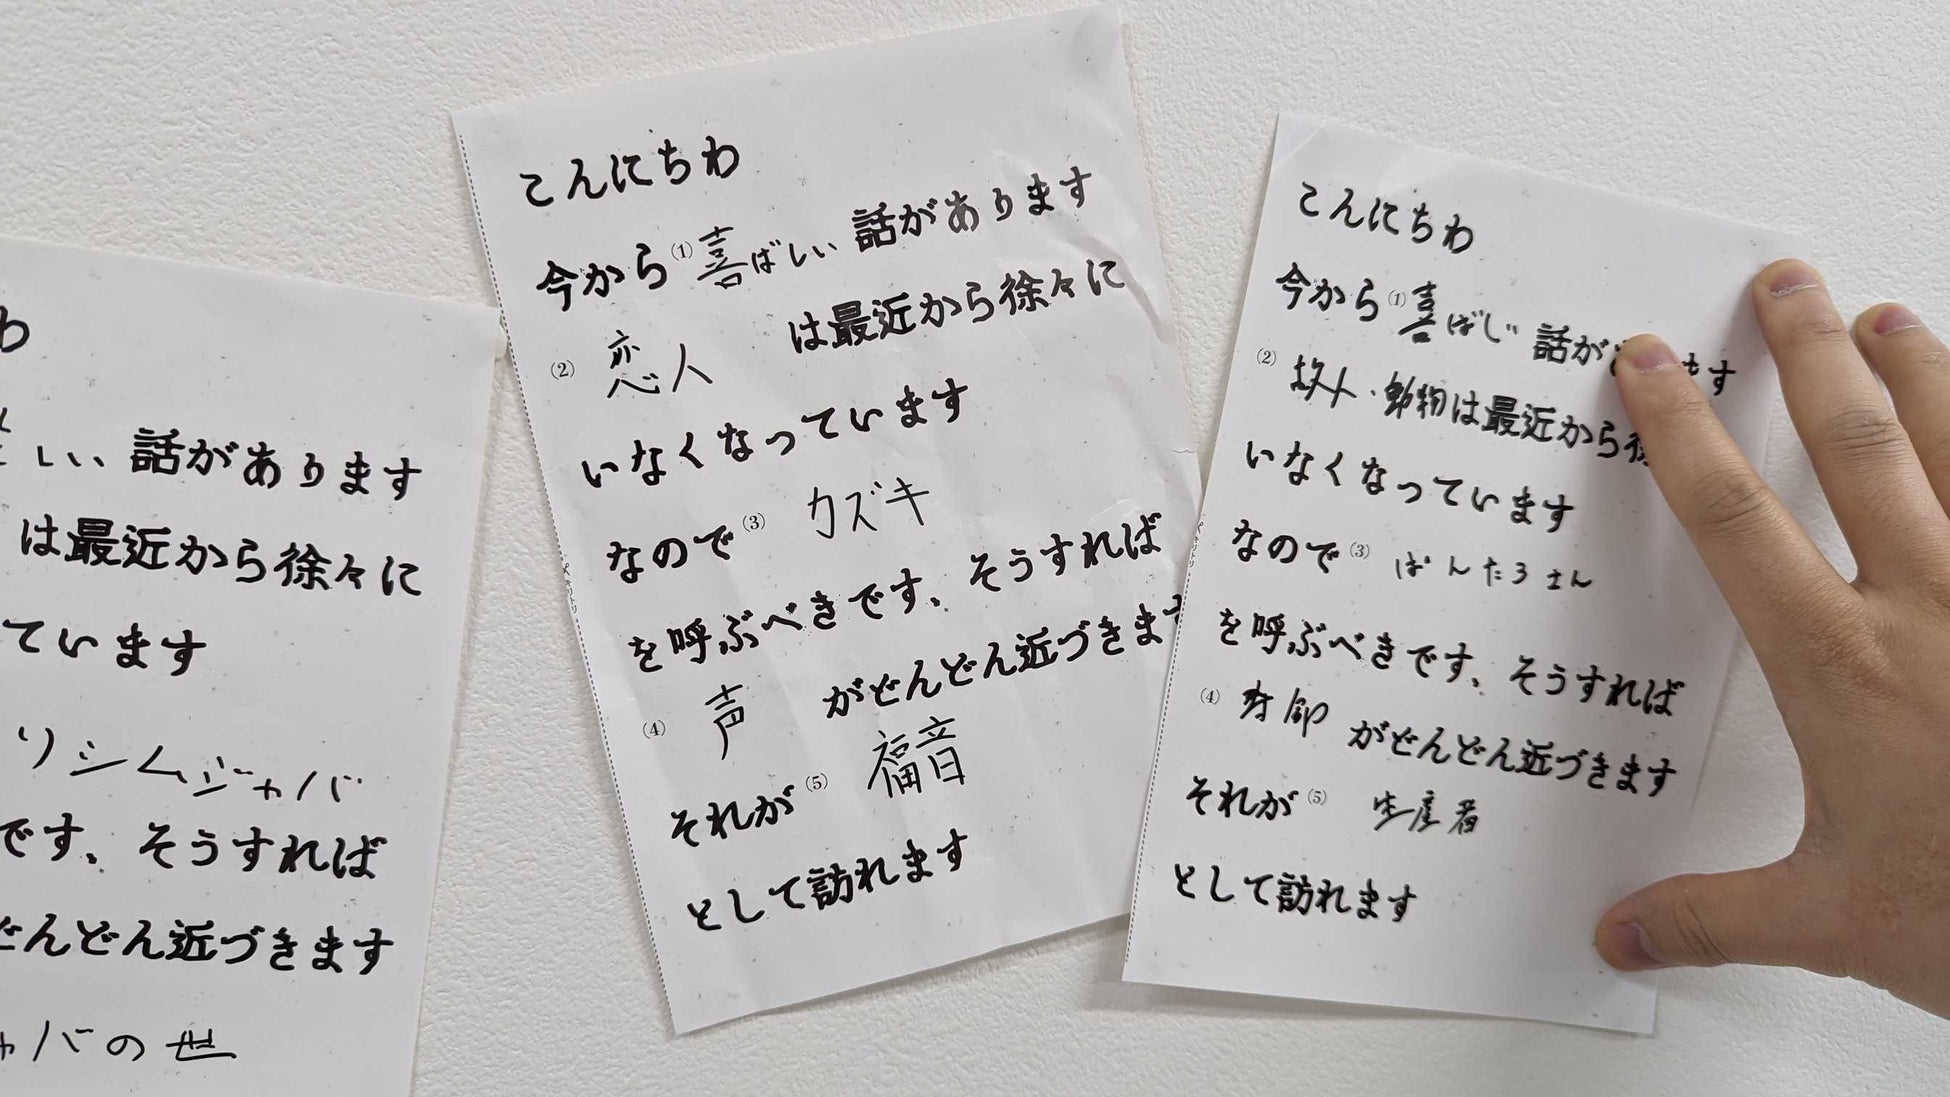 わ
しい 話があります
は最近から徐々に
ています
リシムジャバ
です、そうすれば
どんどん近づきます
ャバの世
こんにちわ
今から(1)喜ばしい 話があります
(2) 恋人 は最近から徐々に
いなくなっています
なので(3) カズキ
を呼ぶべきです、そうすれば
(4) 声 がどんどん近づきます
それが(5) 福音
として訪れます
キリトリ
こんにちわ
今から(1)喜ばしい 話が ます
(2) 動物は最近から徐
いなくなっています
なので(3) ばんたろさん
を呼ぶべきです、そうすれば
(4) がどんどん近づきます
それが(5) 生産者
として訪れます